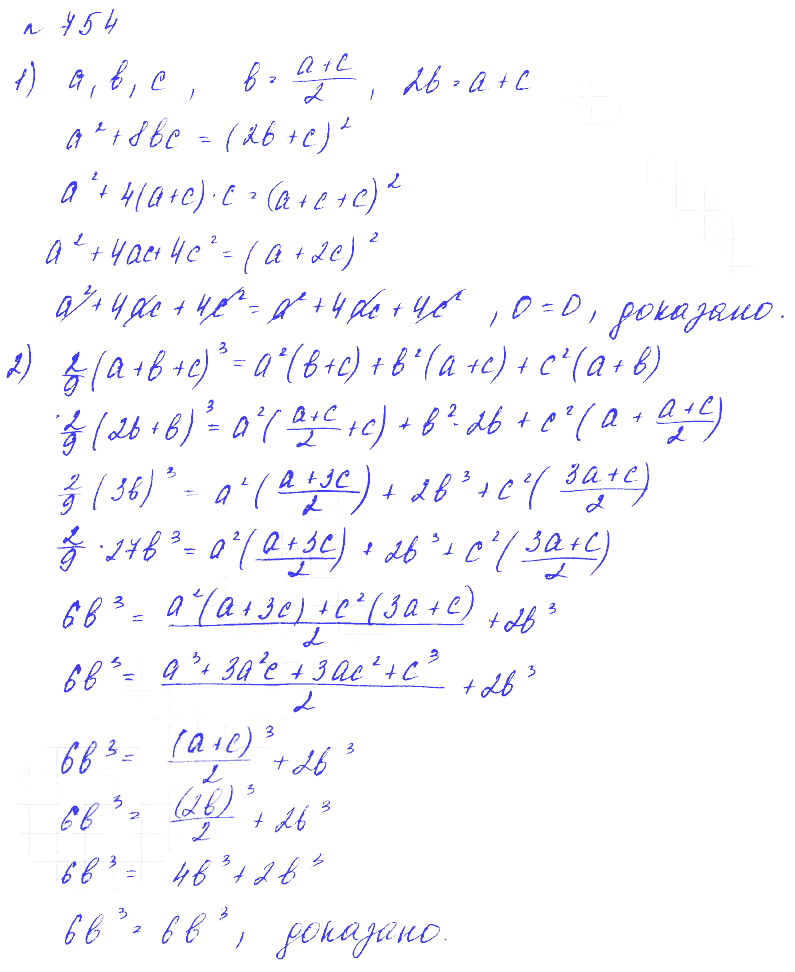 n 754
1) a, b, c, b = (a+c)/2, 2b = a + c
a² + 8bc = (2b + c)²
a² + 4(a+c)·c = (a + c + c)²
a² + 4ac + 4c² = (a + 2c)²
a² + 4ac + 4c² = a² + 4ac + 4c², 0 = 0, доказано.
2) 2/9 (a + b + c)³ = a²(b+c) + b²(a+c) + c²(a+b)
2/9 (2b + b)³ = a²((a+c)/2 + c) + b²·2b + c²(a + (a+c)/2)
2/9 (3b)³ = a²((a+3c)/2) + 2b³ + c²((3a+c)/2)
2/9 · 27b³ = a²((a+3c)/2) + 2b³ + c²((3a+c)/2)
6b³ = (a²(a+3c) + c²(3a+c))/2 + 2b³
6b³ = (a³ + 3a²c + 3ac² + c³)/2 + 2b³
6b³ = (a+c)³/2 + 2b³
6b³ = (2b)³/2 + 2b³
6b³ = 4b³ + 2b³
6b³ = 6b³, доказано.